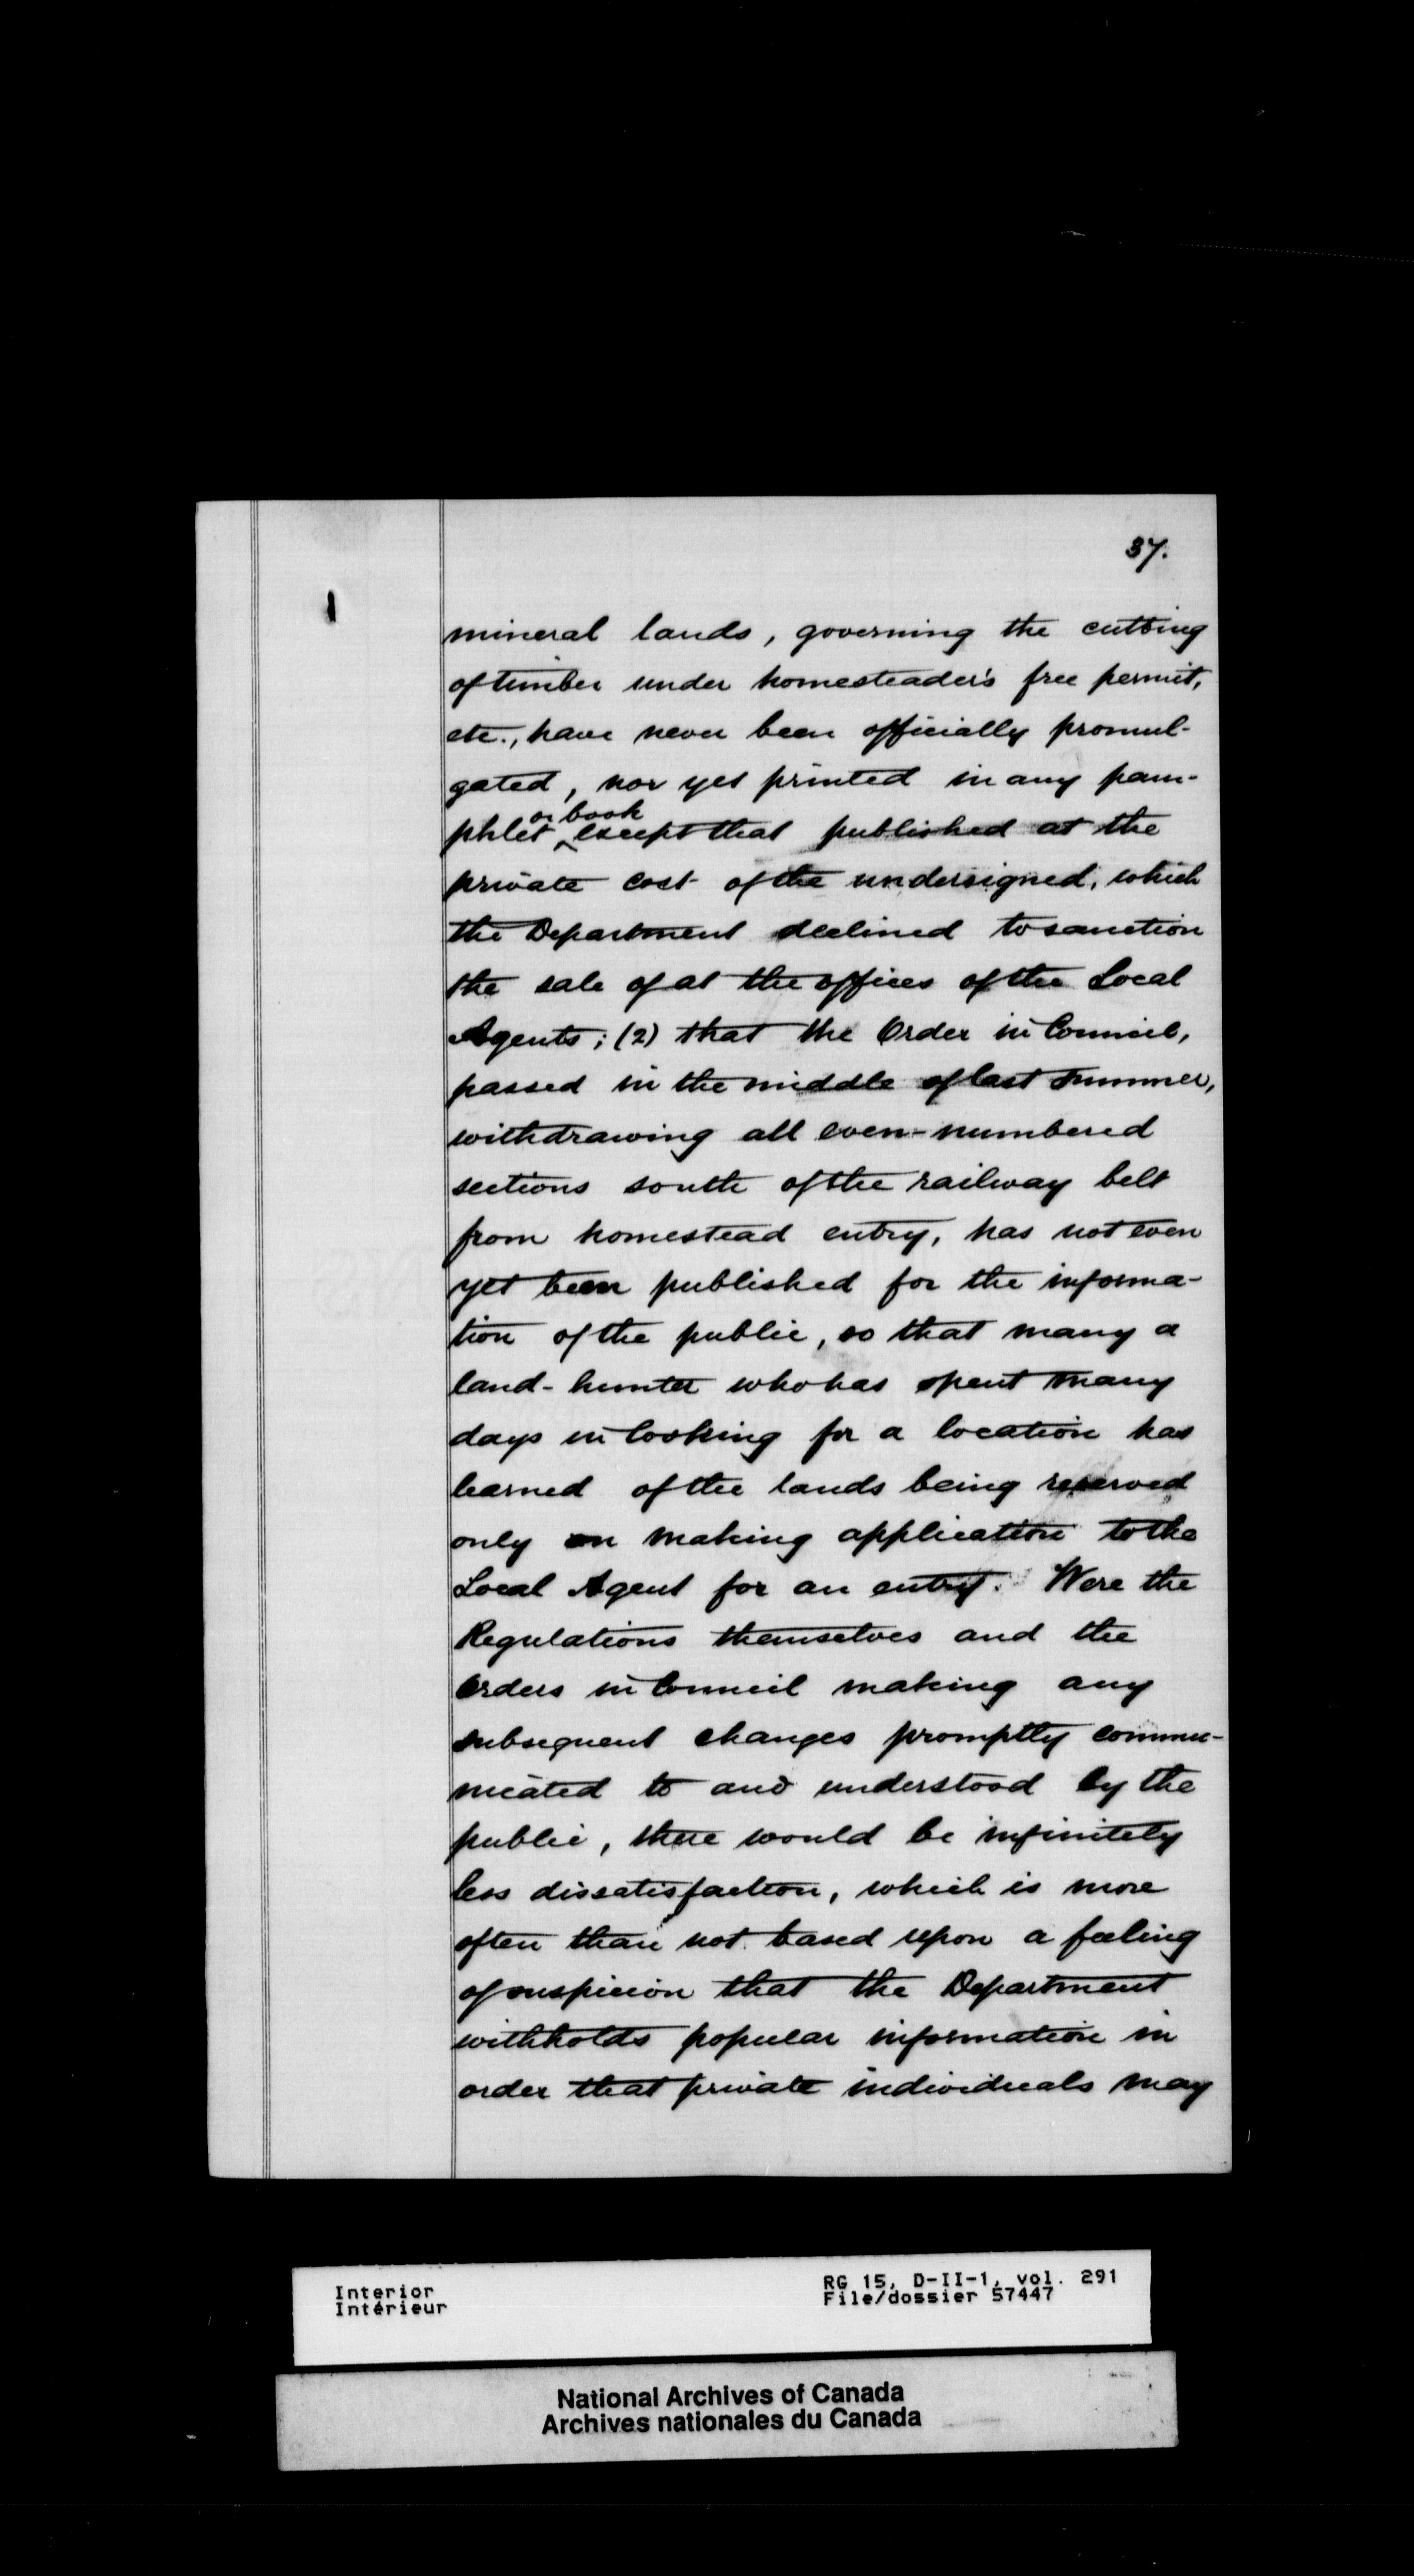 37.
mineral lands, governing the cutting
of timber under homesteader's free permit,
etc., have never been officially promul-
gated, nor yet printed in any pam-
or book
phlet ^ except that published at the
private cost of the undersigned, which
the Department declined to sanction
the sale of at the offices of the Local
Agents; (2) that the Order in Council,
passed in the middle of last summer,
withdrawing all even-numbered
sections south of the railway belt
from homestead entry, has not even
yet been published for the informa-
tion of the public, so that many a
land-hunter who has spent many
days in looking for a location has
learned of the lands being reserved
only on making application to the
Local Agent for an entry. Were the
Regulations themselves and the
Orders in Council making any
subsequent changes promptly commu-
nicated to and understood by the
public, there would be infinitely
less dissatisfaction, which is more
often than not based upon a feeling
of suspicion that the Department
withholds popular information in
order that private individuals may
Interior
Intérieur
RG 15, D-II-1, vol. 291
File/dossier 57447
National Archives of Canada
Archives nationales du Canada